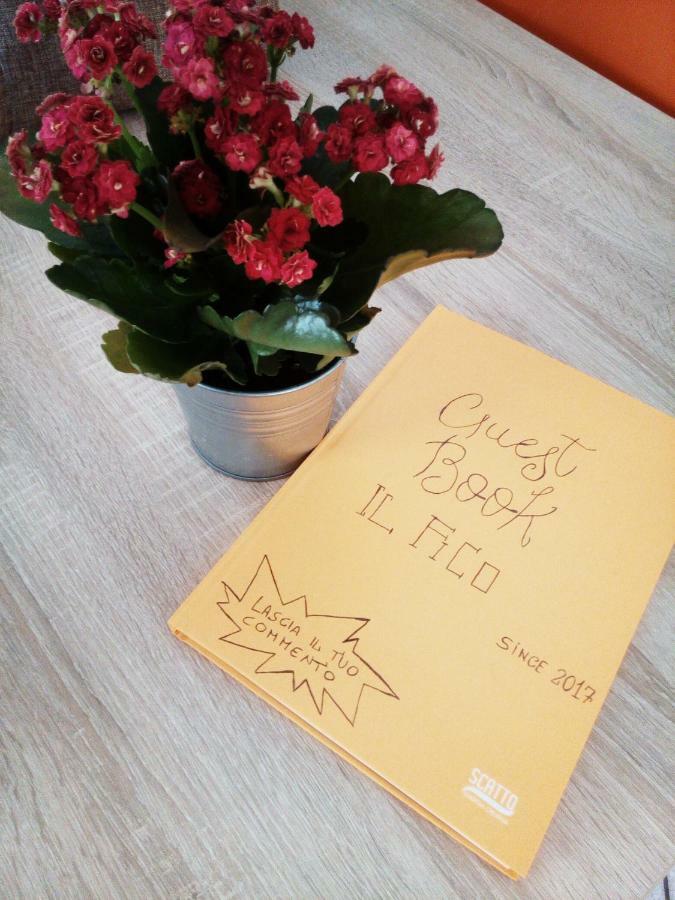 Guest
Book
IL FICO
LASCIA IL TUO
COMMENTO
SINCE 2017
SCATTO